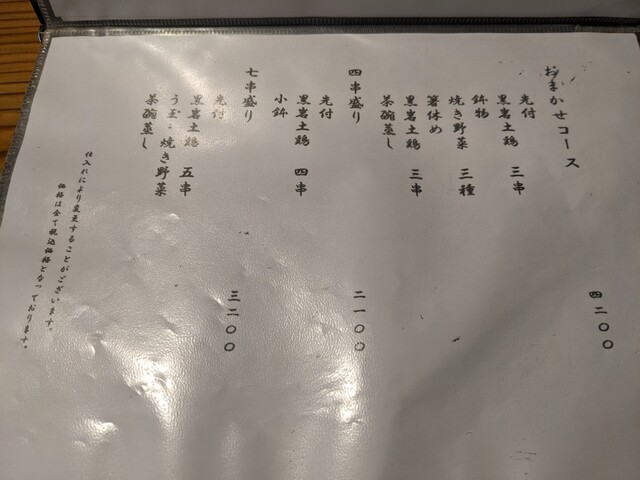 おまかせコース 四二〇〇
先付
黒岩土鶏 三串
鉢物
焼き野菜 三種
箸休め
黒岩土鶏 三串
茶碗蒸し
四串盛り 二一〇〇
先付
黒岩土鶏 四串
小鉢
七串盛り 三二〇〇
先付
黒岩土鶏 五串
う玉・焼き野菜
茶碗蒸し
仕入れにより変更することがございます。
価格は全て税込価格となっております。